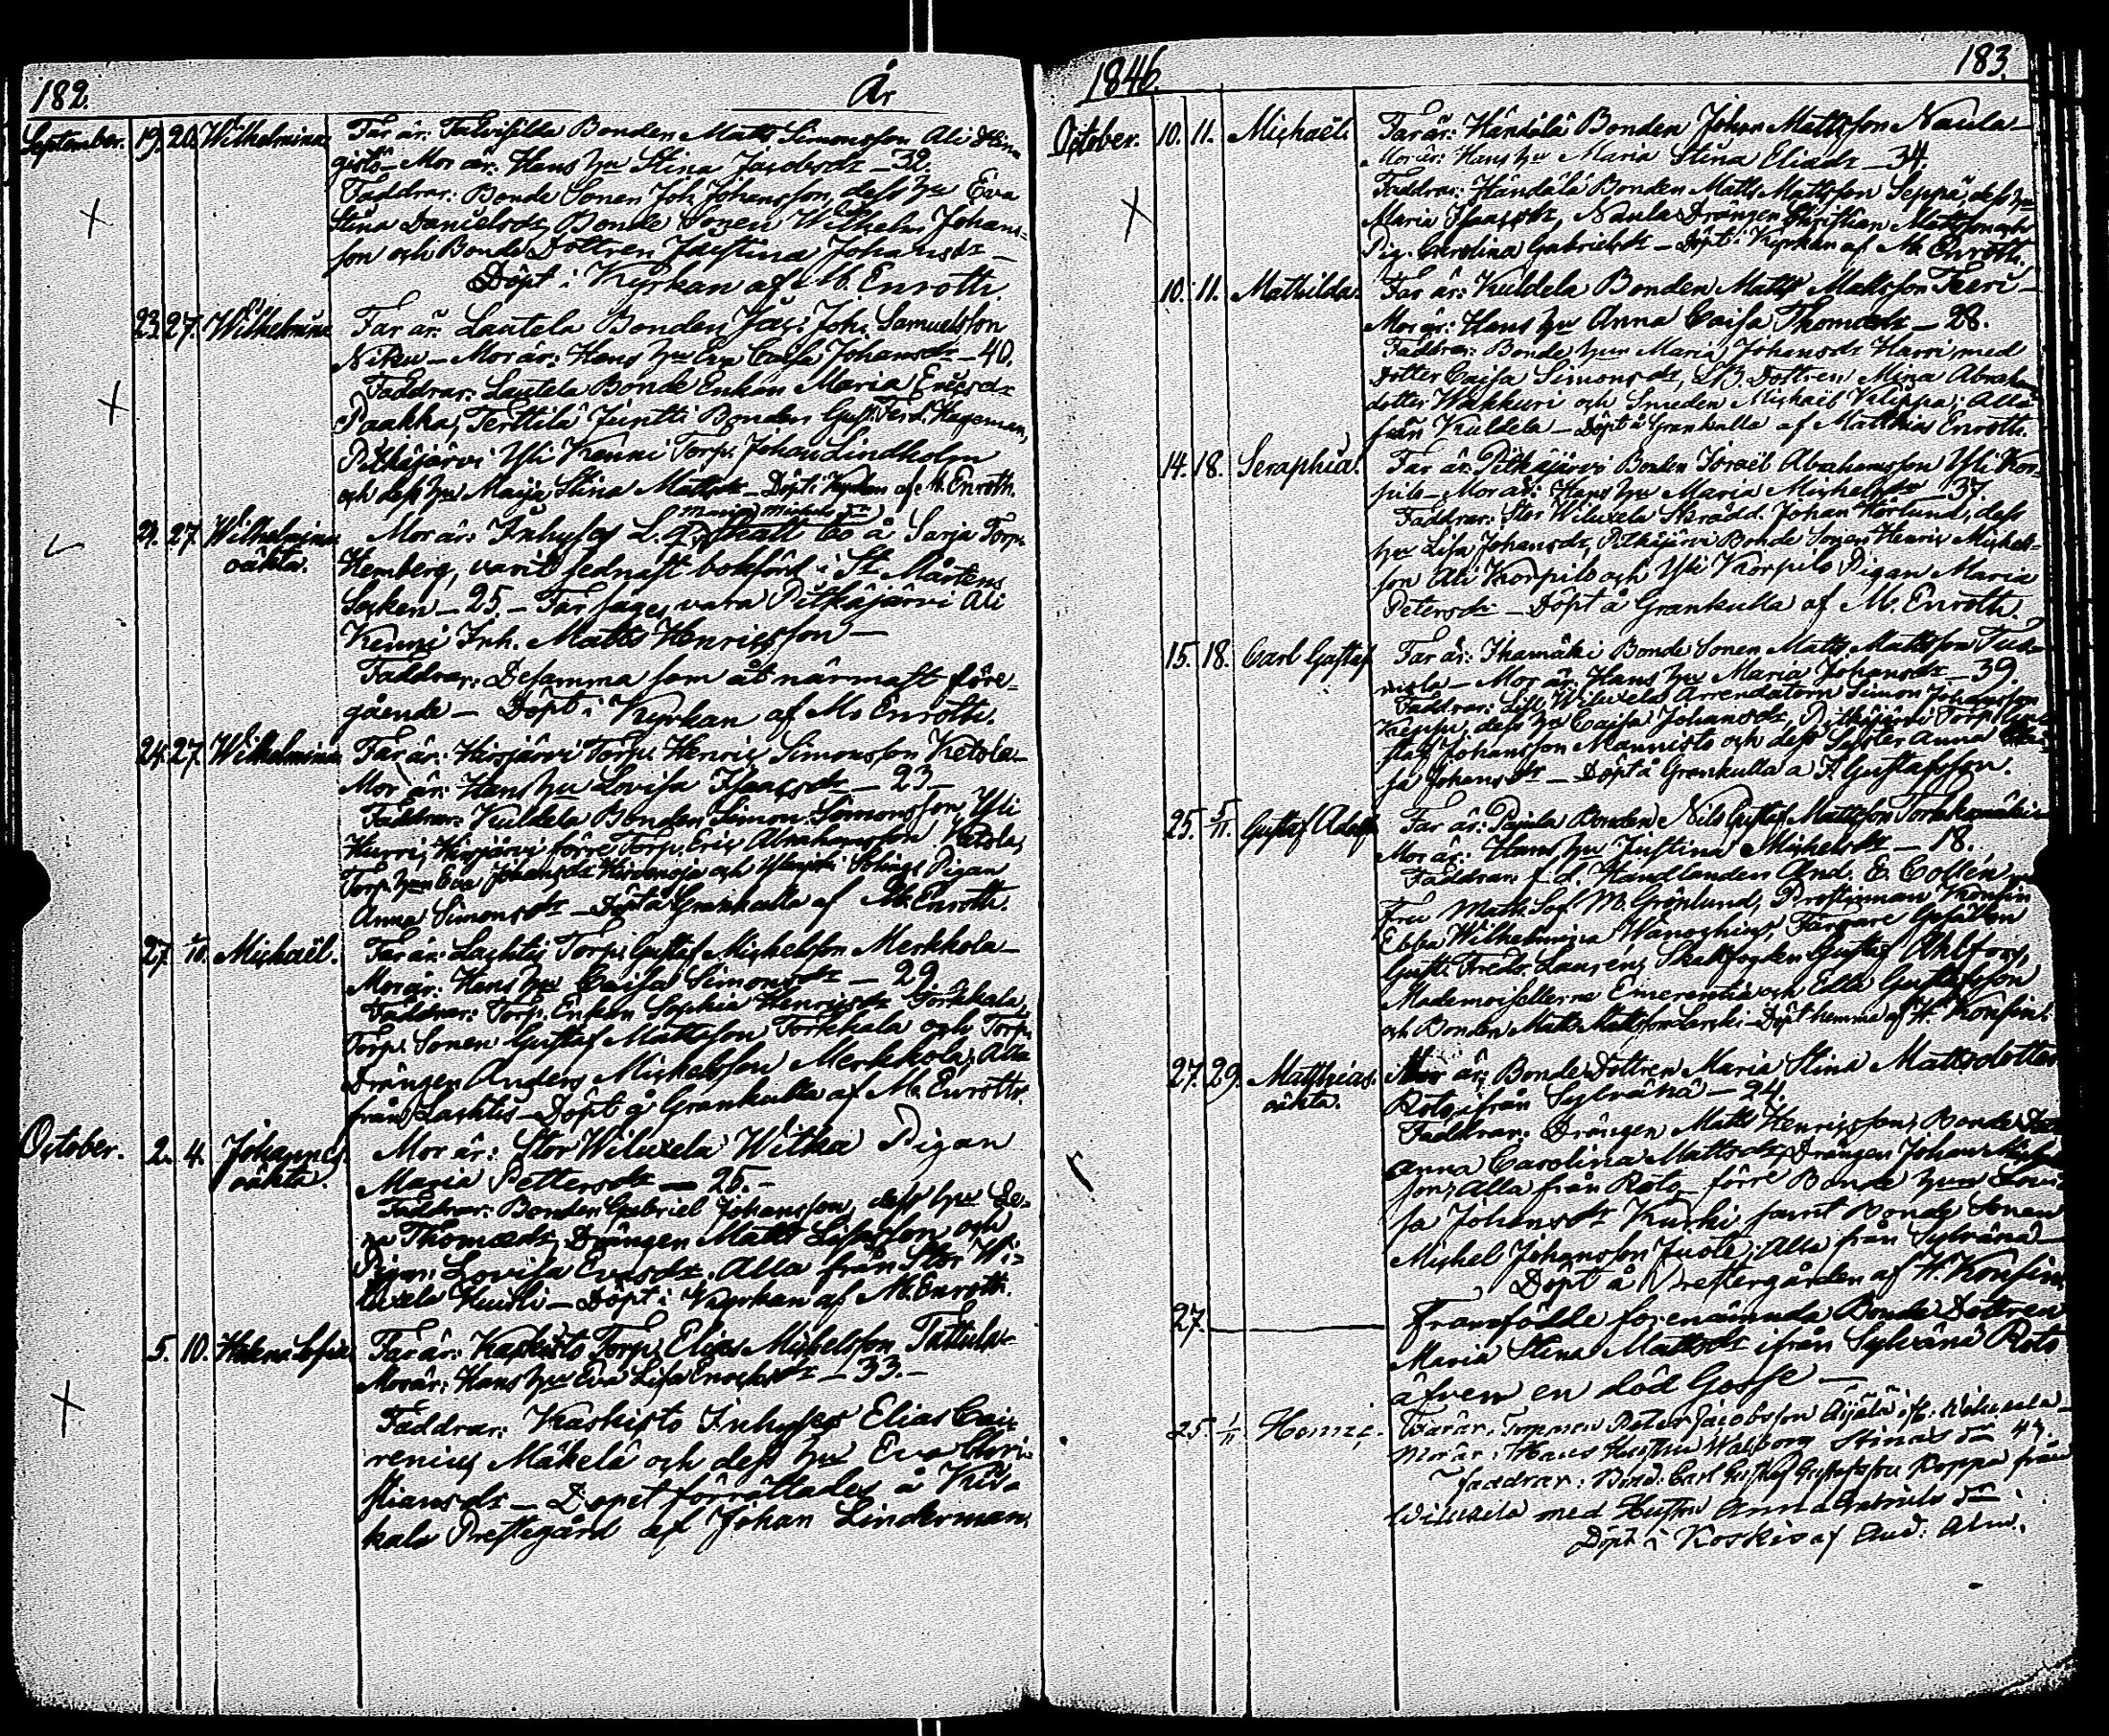 182. År
September. 19. 20. Wilhelmina. Far är: Talvisilda Bonden Matts Simonsson Ali
gistö – Mor är: Hans hu Stina Jacobsdr – 32.
Faddrar: Bonde Sonen Joh. Johansson, dess hu Eva
Stina Danielsdr, Bonde Sonen Wilhelm Johans-
son och Bonde Dottren Justina Johansdr –
Döpt i Kyrkan af M. Enroth.
23. 27. Wilhelmina Far är: Lautela Bonden Jac: Joh. Samuelsson
Niku – Mor är: Hans hu Eva Caisa Johansdr – 40.
Faddrar: Lautela Bonde Enkan Maria Ericsdr
Paakka, Terttilä Juntti Bonden Gust. Ferd. Hageman,
Pitkäjärvi Yli Kenni Torp. Johan Lindholm
och dess hu Maija Stina Mattsdr – Döpt i Kyrkan af M. Enroth.
Maria Michelsdr
27. Wilhelmina Mor är: Inhyses å Sarja Torp.
oäkta. Hemberg, varit sednast bokförd i St Mårtens
Socken – 25. – Far säges vara Pitkäjärvi Ali
Kenni Inh. Matts Henricsson –
Faddrar: Desamma som åt närmast före-
gående – Döpt i Kyrkan af M. Enroth.
24. 27. Wilhelmina Far är: Hirsjärvi Torp. Henric Simonsson Ketola –
Mor är: Hans hu Lovisa Isaacsdr – 23 –
Faddrar: Kuldela Bonden Simon Simonsson Yli
Hurri, Hirsjärvi förre Torp. Eric Abrahamsson Ketola,
Torp. hun Eva Johansdr Hirvenoja och Pigan
Anna Simonsdr – Döpt å Grankulla af M. Enroth.
27. Michaël. Far är: Lachtis Torp. Gustaf Michelsson Merkkola –
Mor är: Hans hu Caisa Simonsdr – 29
Faddrar: Torp. Enkan Sophia Henricsdr Torkkala,
Torp. Sonen Gustaf Mattsson Torkkala och Torp.
Drängen Anders Michelsson Merkkola, Alla
från Lachtis – Döpt å Grankulla af M. Enroth.
October. 2. 4. Johannes. Mor är: Stor Wiluxela Witka Pigan
oäkta. Maria Pettersdr – 25. –
Faddrar: Bonden Gabriel Johansson, dess hu Le-
na Thomasdr, Drängen Matts och
Pigan Lovisa Evasdr. Alla från Stor Wi-
luxela Kuusti – Döpt i Kyrkan af M. Enroth.
5. 10. Helena Sofia Far är: Kaskisto Torp. Elias Michelsson Tattula –
Mor är: Hans hu Eva Lisa Enochsdr – 33. –
Faddrar: Kaskisto Inhyses Elias Cai-
renius Mäkelä och dess hu Eva Chri-
stiansdr – Dopet förrättades å Kiu-
kala Prestegård af Johan Linderman.
1846. 183.
October. 10. 11. Michaël. Far är: Händälä Bonden Johan Mattsson Naula –
Mor är: Hans hu Maria Stina Eliasdr – 34.
Faddrar: Händälä Bonden Matts Mattsson Seppä, dess hu
Maria Isaacsdr, Naula Drängen Christian Mattsson och
Pig. Carolina Gabrielsdr – Döpt i Kyrkan af M. Enroth.
10. 11. Mathilda. Far är: Kuldela Bonden Matts Mattsson Feeri –
Mor är: Hans hu Anna Caisa Thomasdr – 28.
Faddrar: Bonde hun Maria Johansdr Harri med
dotter Caisa Simonsdr, Dottren Mina Abraham
dotter Wakkuri och Smeden Michaël Kilippa; Alla
från Kuldela – Döpt å Grankulla af Matthias Enroth.
14. 18. Seraphia. Far är: Pitkäjärvi Bonden Israël Abrahamsson Yli Kor-
pilo – Mor är: Hans hu Maria Michelsdr – 37.
Faddrar: Stor Wiluxela Skrädd. Johan Hörlund, dess
hu Lisa Johansdr, Pitkäjärvi Bonde Sonen Henric Michels-
son Ali Korpilo och Yli Korpilo Pigan Maria
Petersdr – Döpt å Grankulla af M. Enroth.
15. 18. Carl Gustaf Far är: Ihamäki Bonde Sonen Matts Mattsson
– Mor är: Hans hu Maria Johansdr – 39.
Faddrar: Lill Wiluxela Arrendatorn Simon Johansson
Keppu, dess hu Caisa Johansdr, Pitkäjärvi Torp. Gu-
staf Johansson Mannisto och dess Syster Anna
sa Johansdr – Döpt å Grankulla a F. Gustafsson.
25. 5/11. Gustaf Adolf Far är: Pajula Bonden Nils Gustaf Mattsson Torkkomäki –
Mor är: Hans hu Justina Michelsdr – 18.
Faddrar: f. d. Handlanden And. E. Collén,
Fru Math. Sof. M. Grönlund, Prostinnan Konsin
Ebba Wilhelmina Wänochius, Färgare Gesällen
Gust. Fredr. Laurens, Skattfogden Gustaf Ahlfors,
Mademoisellerne Emerentia och Ella Gustafsson
och Bonden Matts Mattsson Larski – Döpt hemma af H. Konsin.
27. 29. Matthias. Mor är: Bonde Dottren Maria Stina Mattsdotter
oäkta. Roto, ifrån Sylvänä – 24.
Faddrar: Drängen Matts Henricsson, Bonde
Anna Carolina Mattsdr, Drängen Johan
son; Alla från Roto – förre Bonde hun Lovi-
sa Johansdr Kurki samt Bonde Sonen
Michel Johansson Juote; Alla från Sylvänä –
Döpt å Prestergården af H. Konsin
27. Framfödde förenämnda Bonde Dottren
Maria Stina Mattsdr ifrån Sylvänä Roto
äfven en död Gosse –
25. 1/11 Henric. Far är: Torpparen Peter Jacobsson Äijälä ifr. Wiluxela –
Mor är: Hans Hustru Walborg Stina
Faddrar: Bond. Carl Gustaf Gustafsson Roppa från
Wiluxela med Hustru Anna Gabriels dr.
Döpt i Koskis af And: Alm.